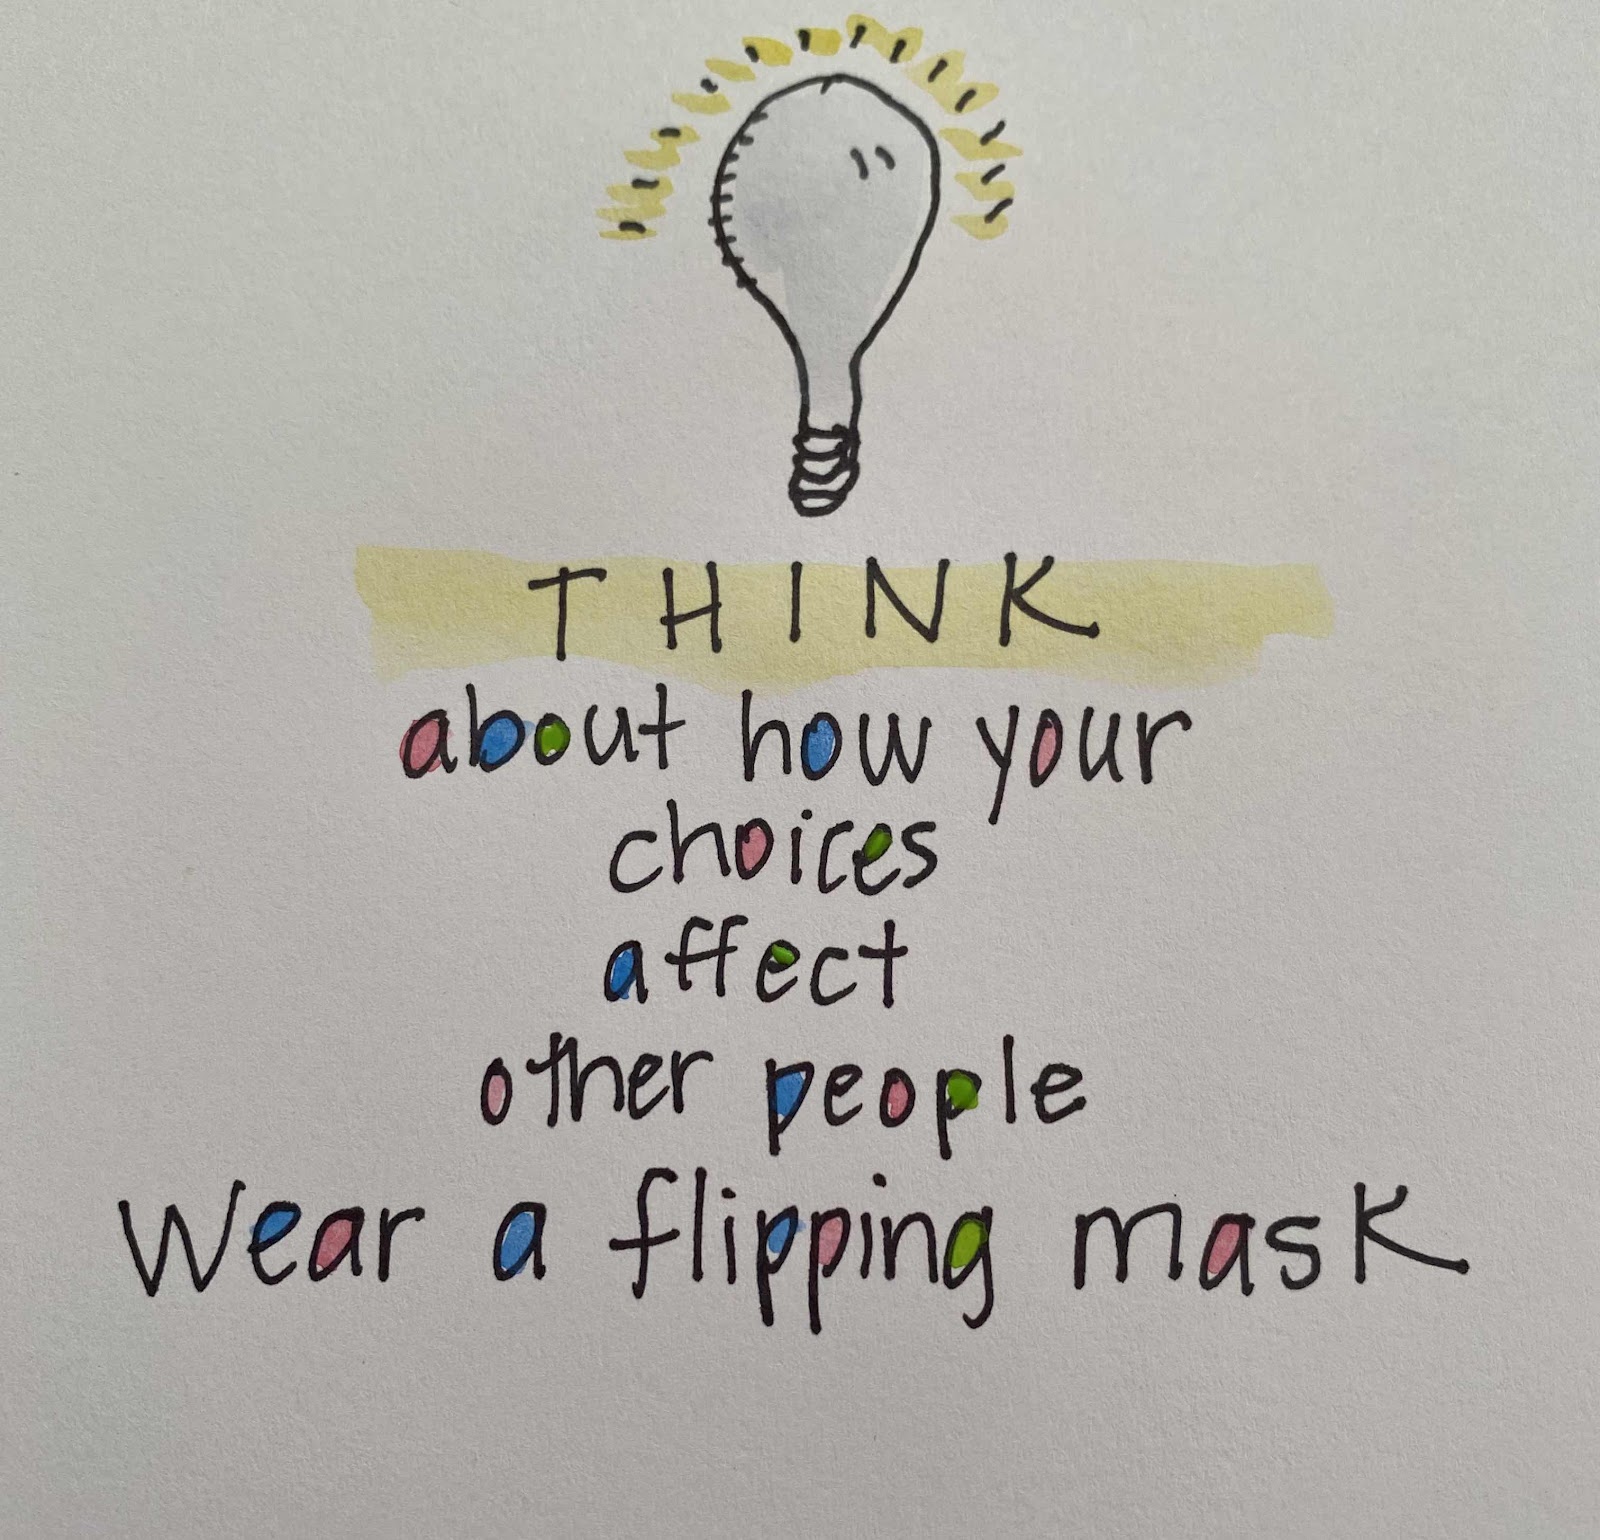 THINK
about how your
choices
affect
other people
Wear a flipping mask